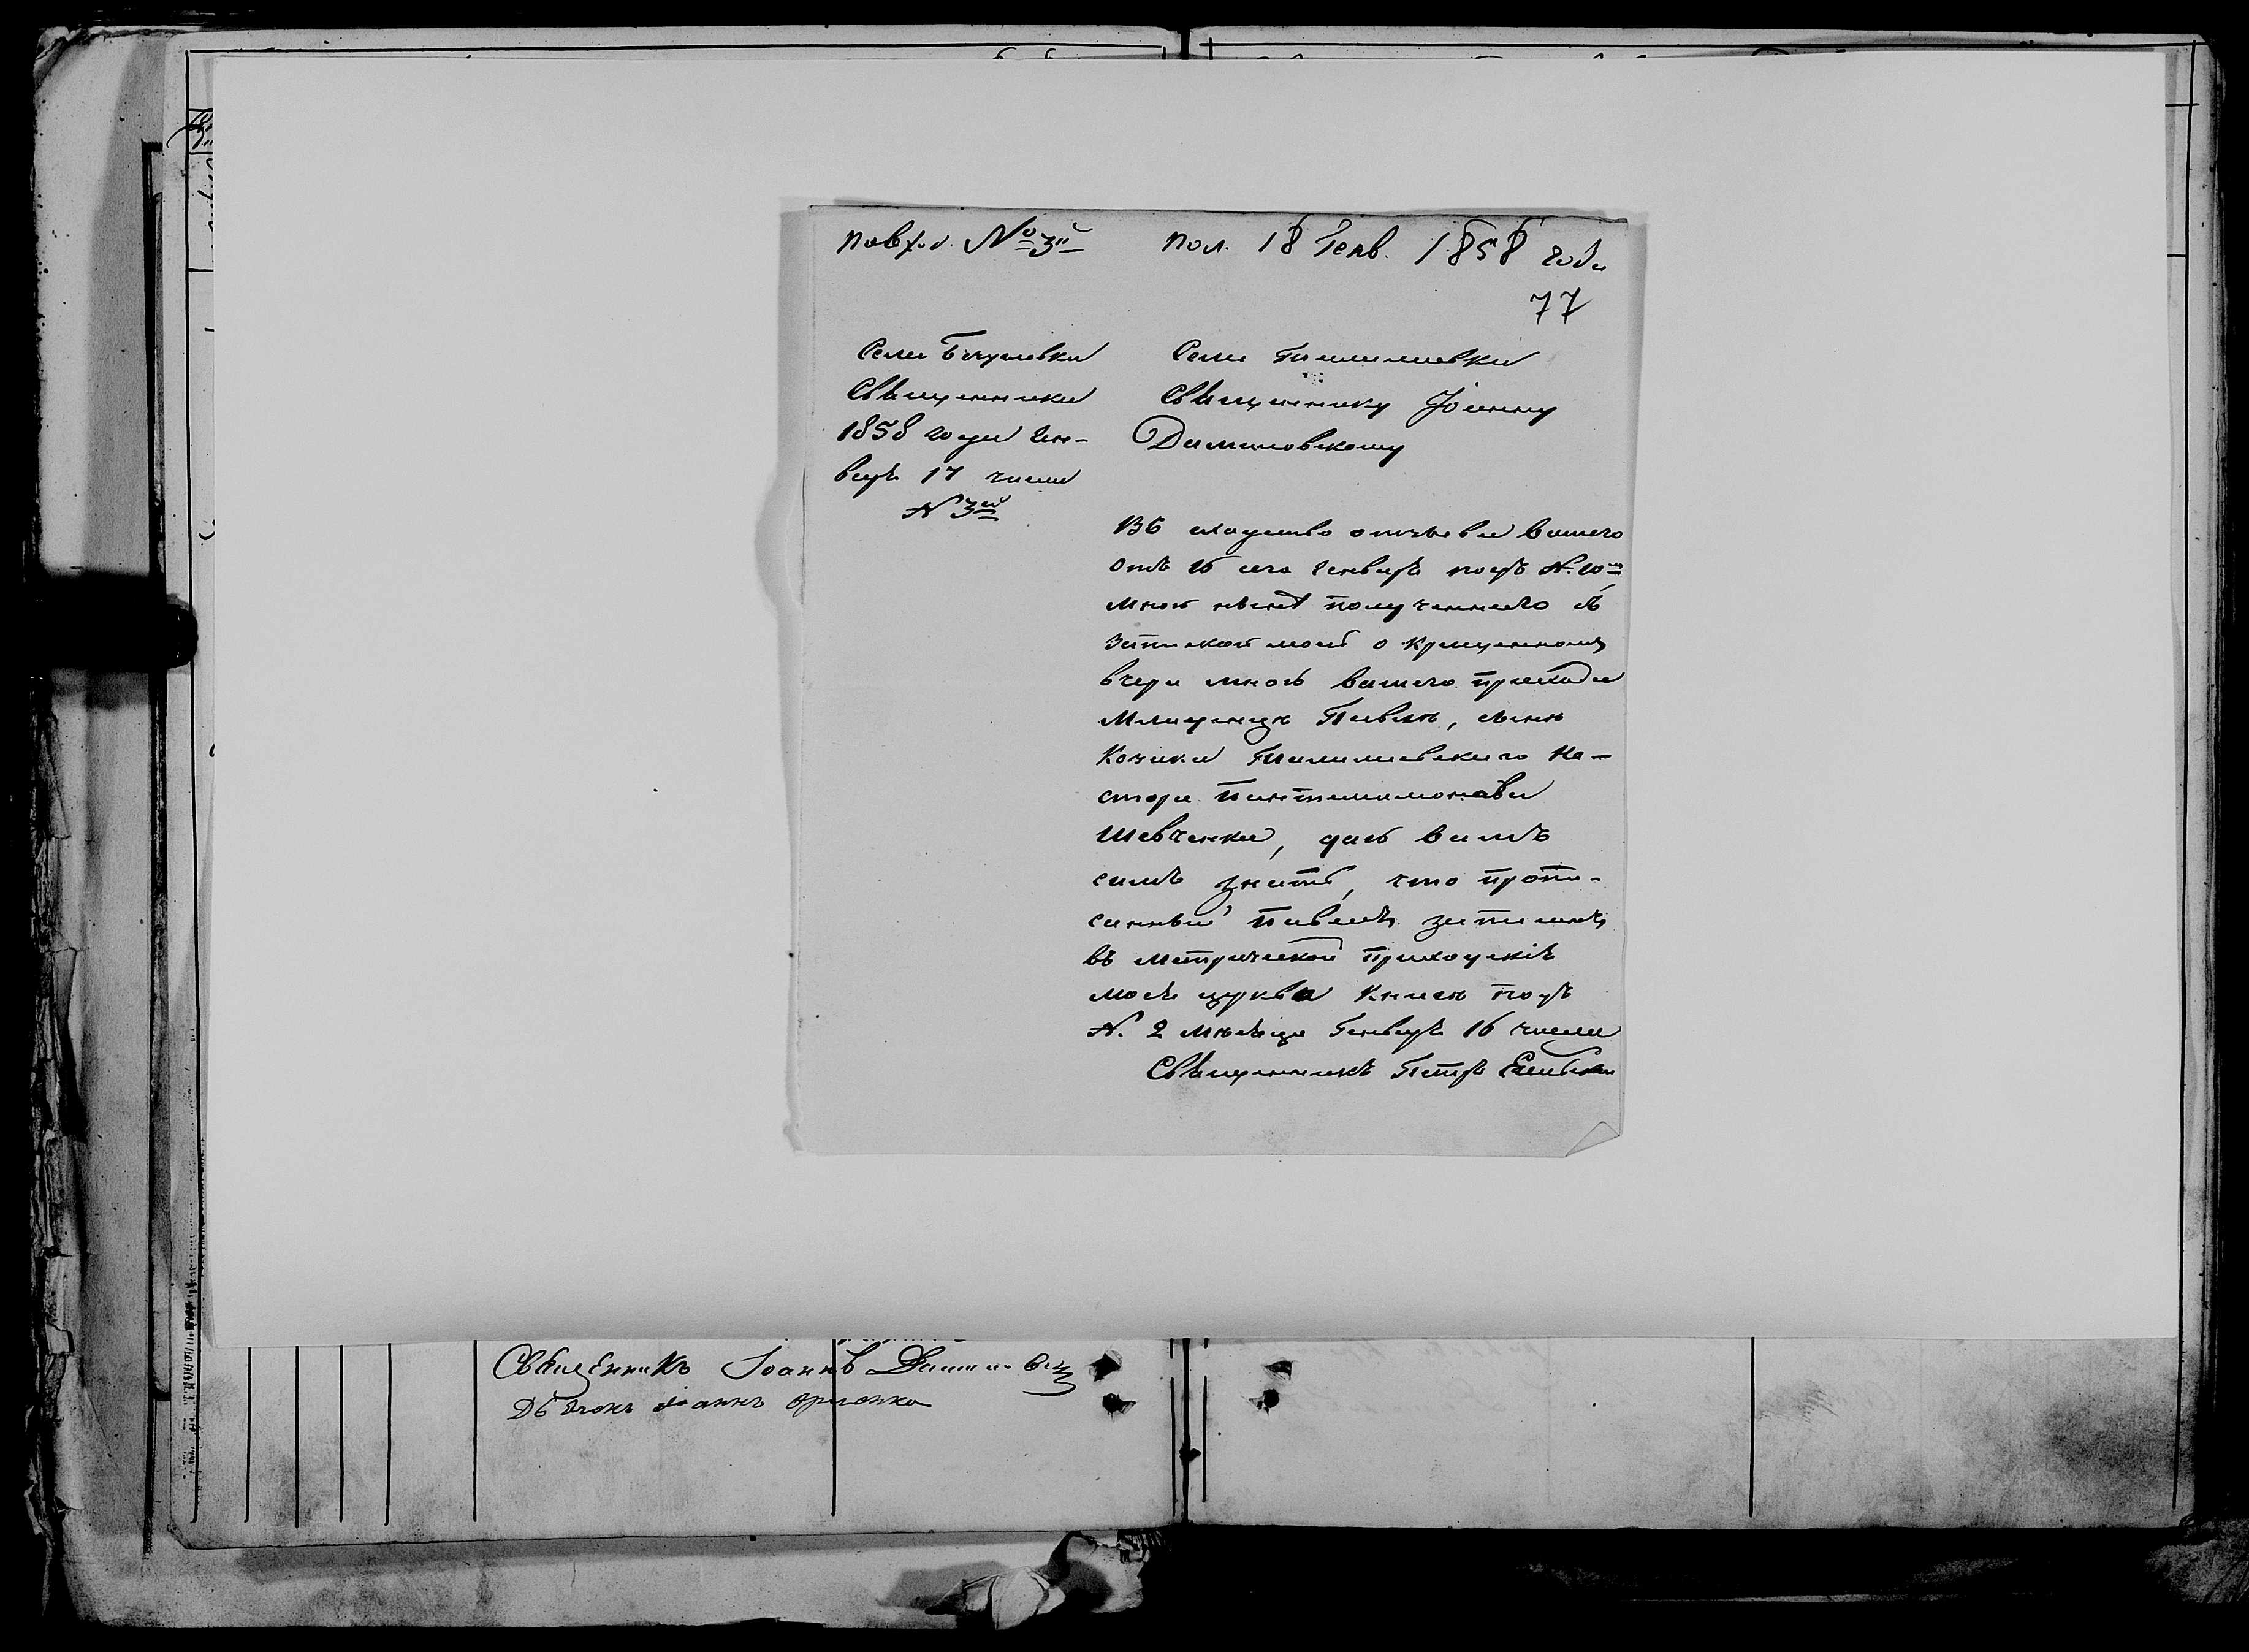 по вход. № 3й пол. 18 Генв. 1858 года
77
Села
Священника
1858 года Ген-
варя 17 числа
N 3й
Села
Священнику Іоанну
Даминовскому
Въ следство отзыва вашего
отъ 16 сего Генваря подъ N. 10м
мною нынѣ полученнаго съ
запиской моею о крещенномъ
вчера мною вашего прихода
Младенцѣ Павлѣ, сынѣ
Козака Не-
стора Пантелимонова
Шевченка, даю вамъ
симъ знать, что пропи-
санный Павелъ записанъ
въ метрической приходскія
моея церкви Книгѣ подъ
N. 2 мѣсяца Генваря 16 числа
Священникъ Петръ
Священникъ Іоаннъ
Дьячокъ Іоаннъ